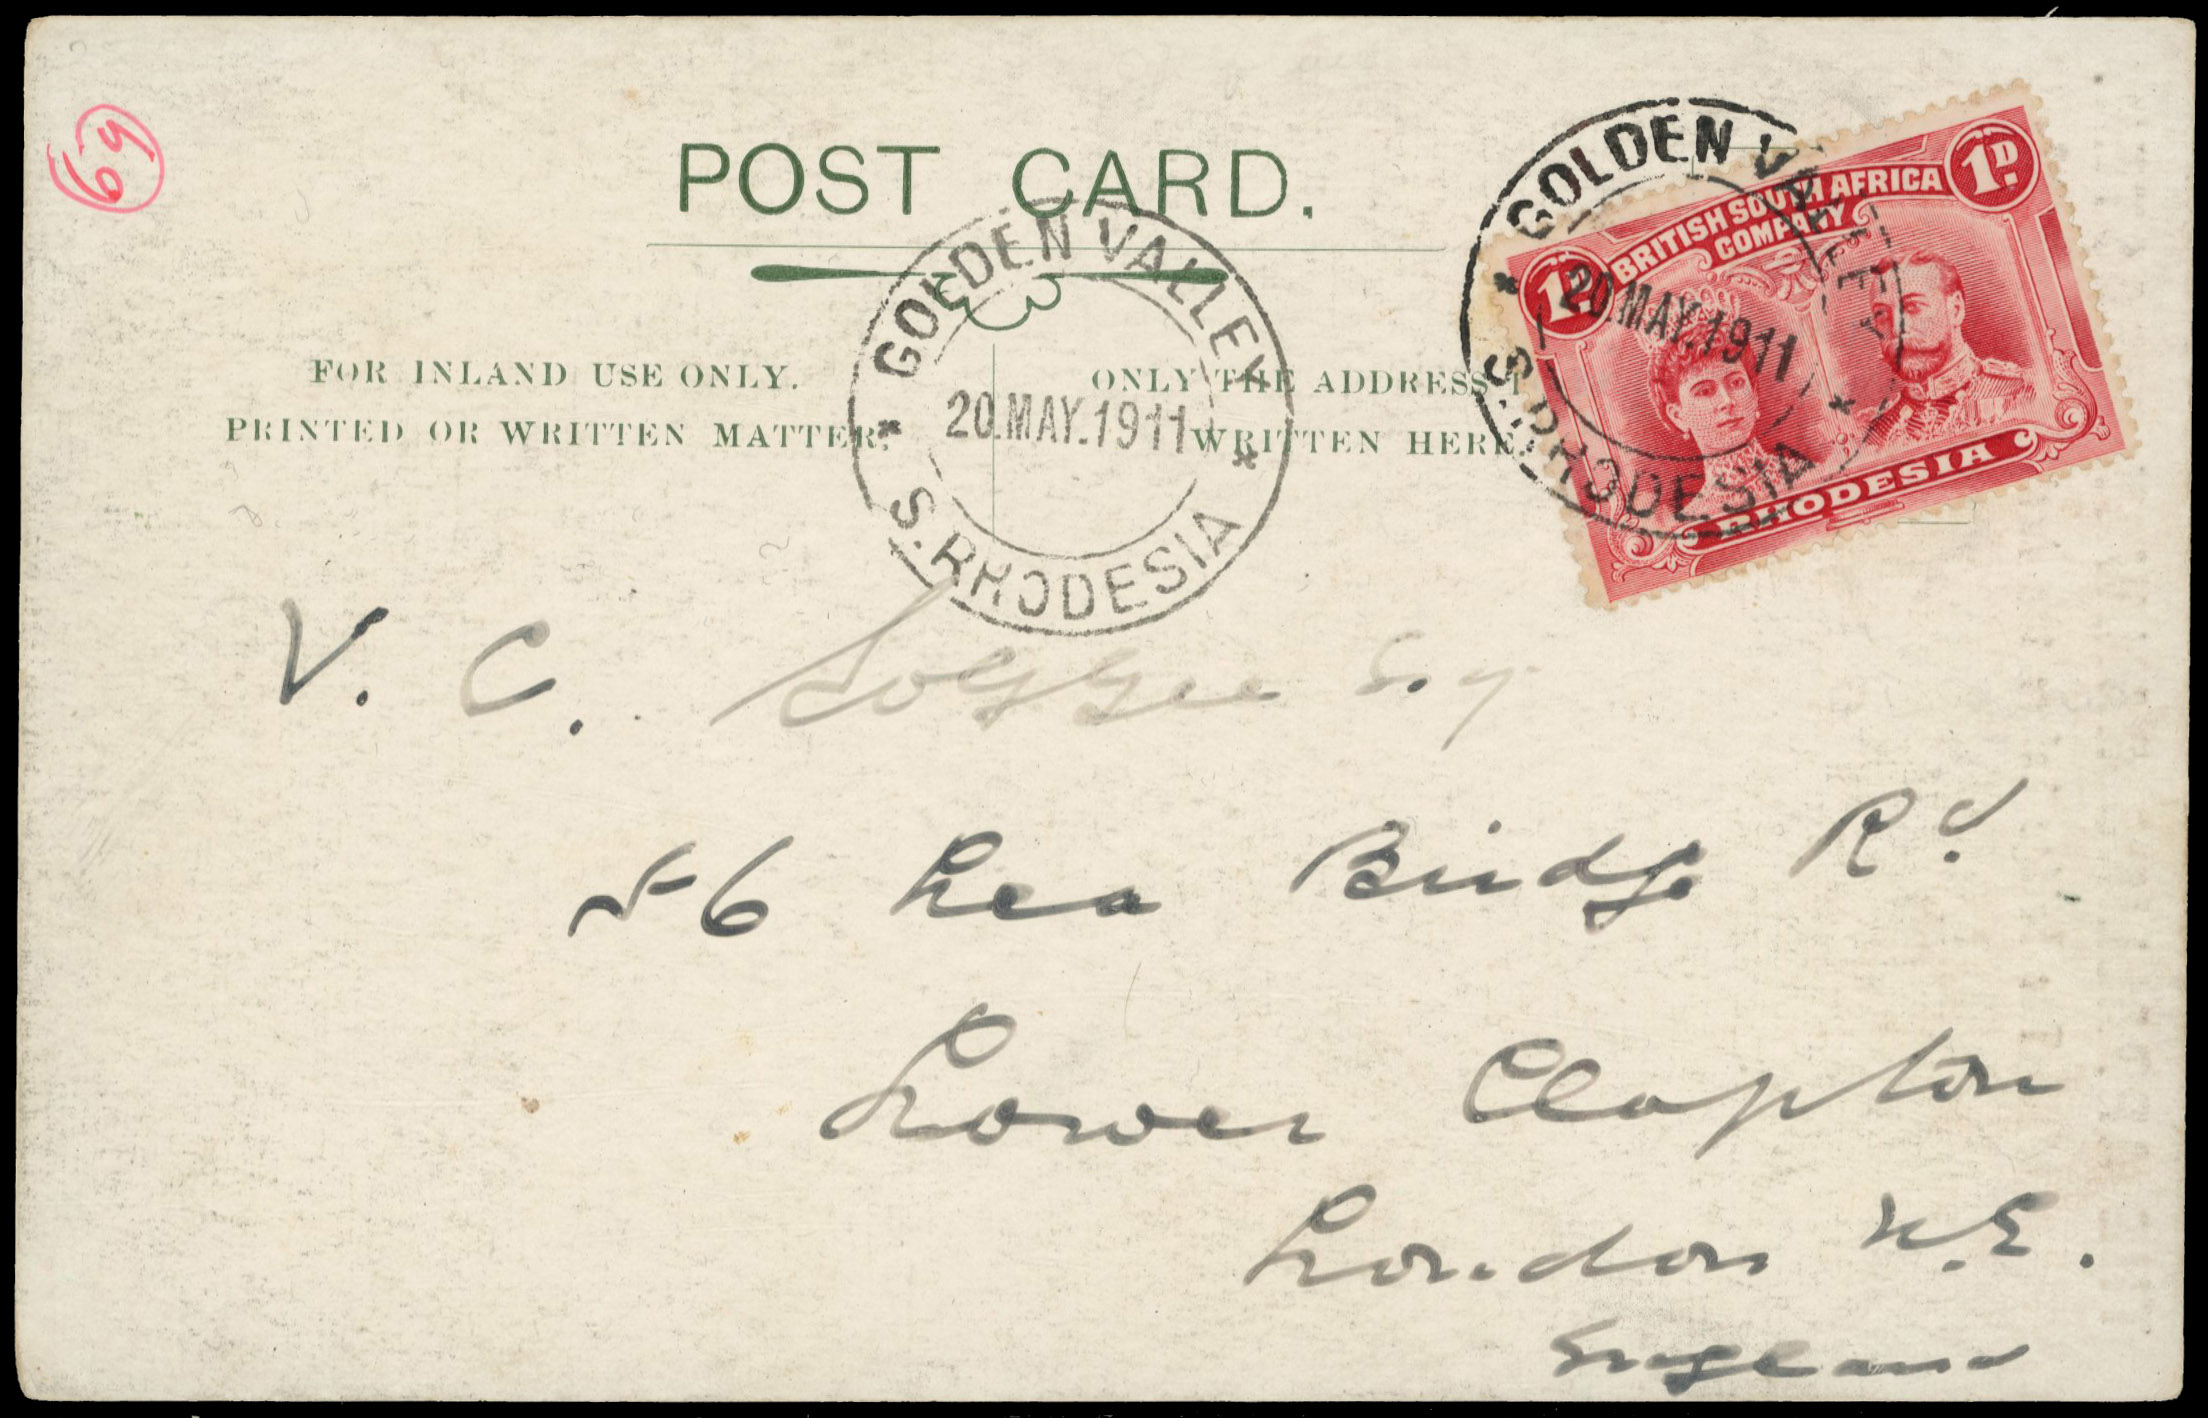 69
POST CARD.
FOR INLAND USE ONLY.
PRINTED OR WRITTEN MATTER.
ONLY THE ADDRESS T
WRITTEN HERE.
GOLDEN VALLEY
20.MAY.1911
S. RHODESIA
GOLDEN VALLEY
20.MAY.1911
S. RHODESIA
1D. 1D.
BRITISH SOUTH AFRICA
COMPANY
RHODESIA
V. C. Esq
56 Lea Bridge Rd.
Lower Clapton
London N.E.
England